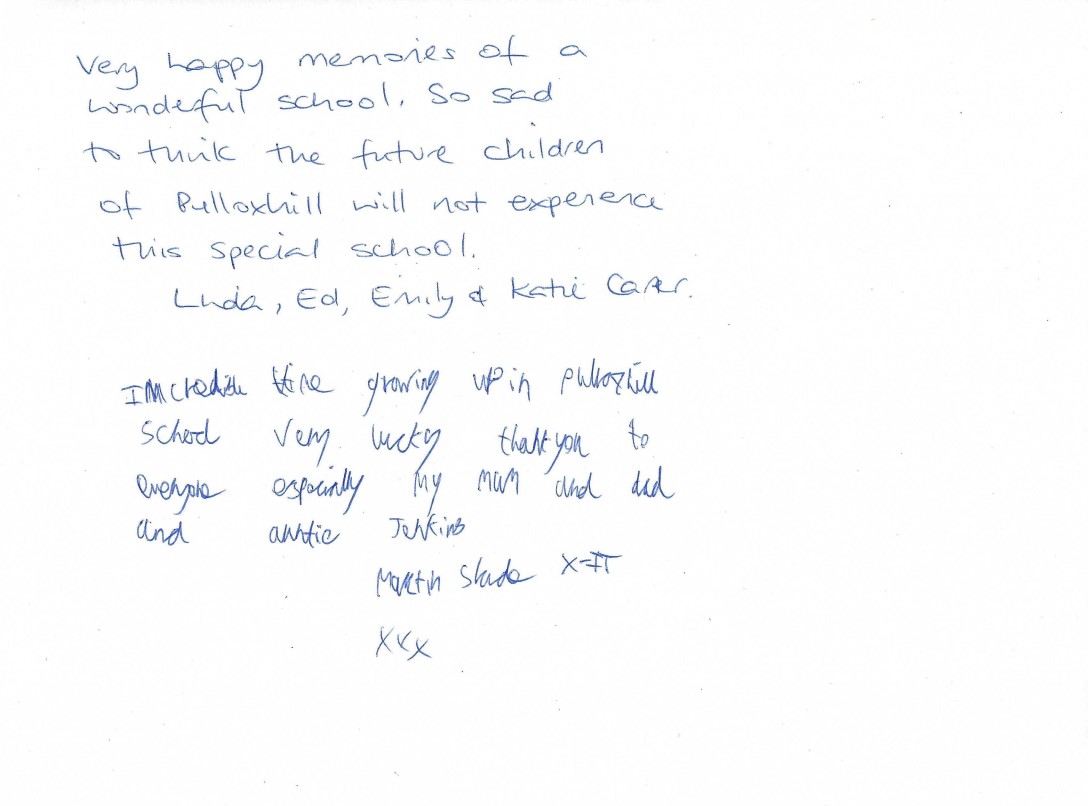 Very happy memories of a
wonderful school. So sad
to think the future children
of Pulloxhill will not experience
this special school.
Linda, Ed, Emily & Katie Carter.
Incredible time growing up in pulloxhill
School very lucky thankyou to
everyone especially my mum and dad
and auntie Jenkins
Martin Slade
xxx